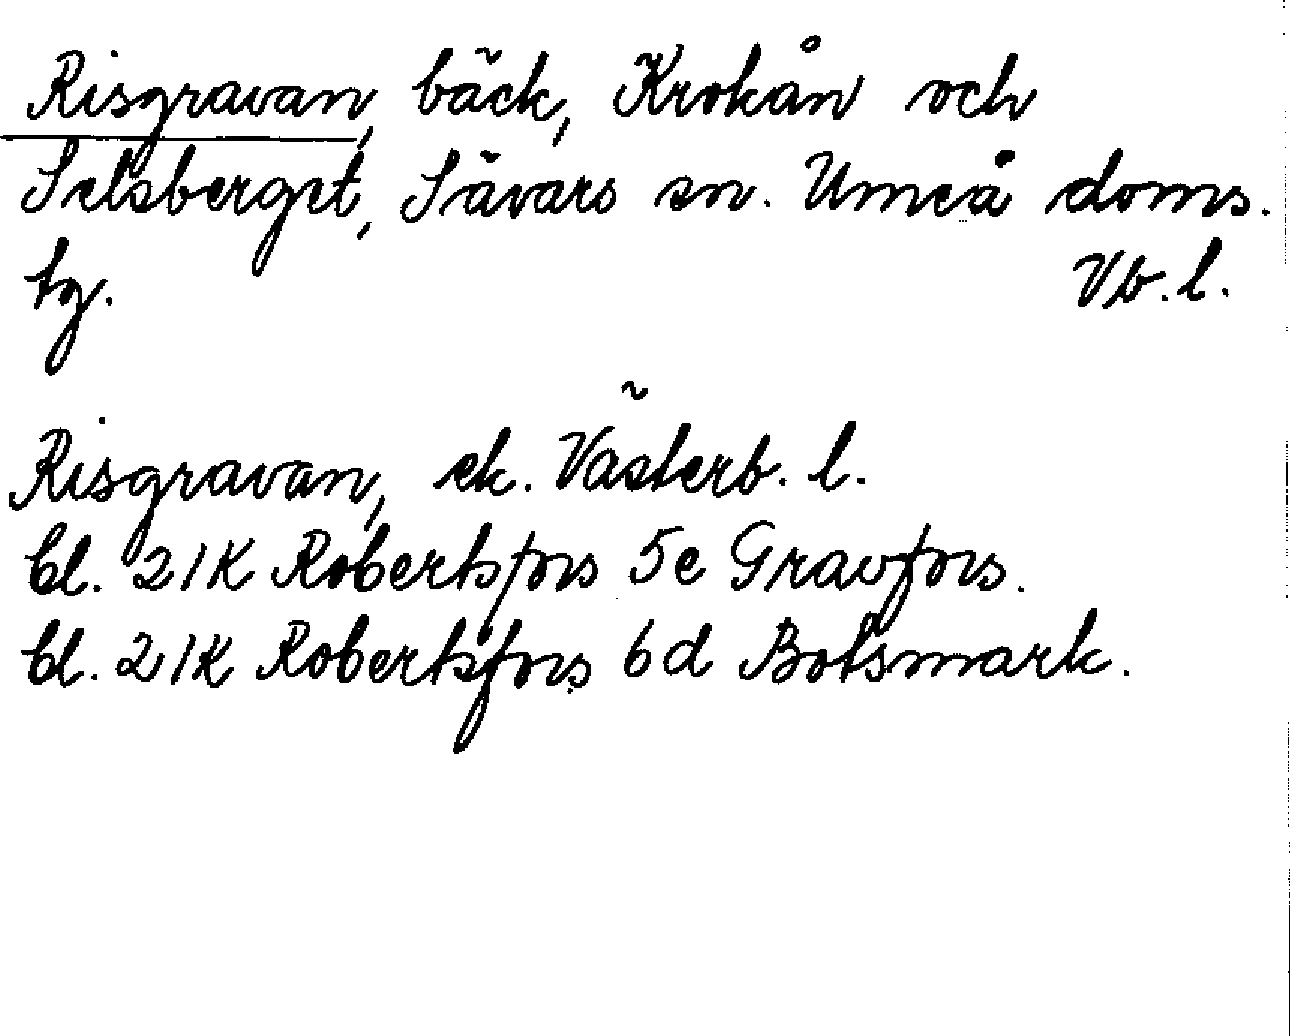 Risgravan, bäck, Krokån och
Selsberget, Sävars sn. Umeå doms.
tg. Vb. l.
Risgravan, ek. Västerb. l.
bl. 21K Robertsfors 5e Gravfors.
bl. 21K Robertsfors 6d Botsmark.